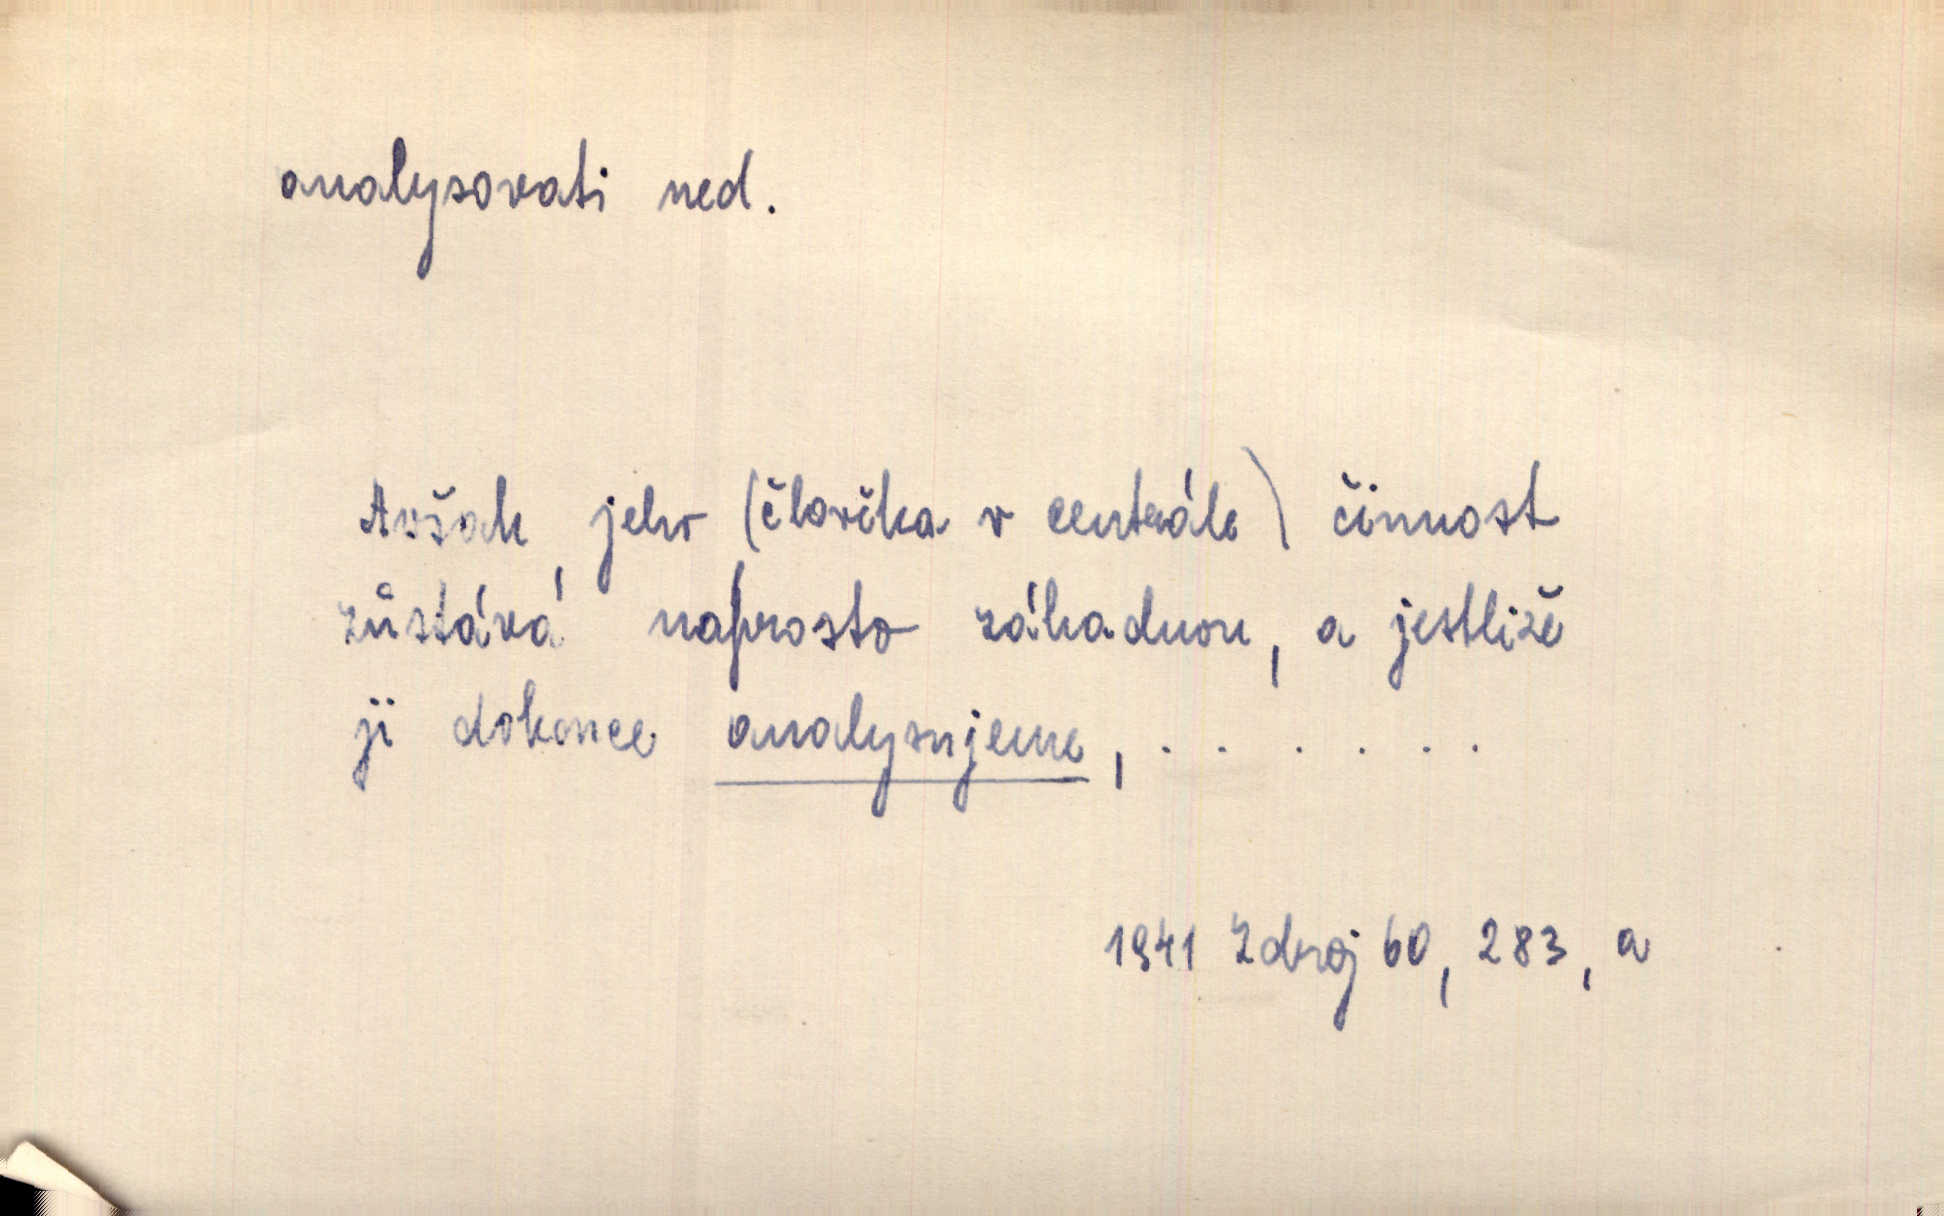 analysovati ned.
Avšak jeho (člověka v centrále) činnost
zůstává naprosto záhadnou, a jestliže
ji dokonce analysujeme, . . . . . .
1941 Zdroj 60, 283, a